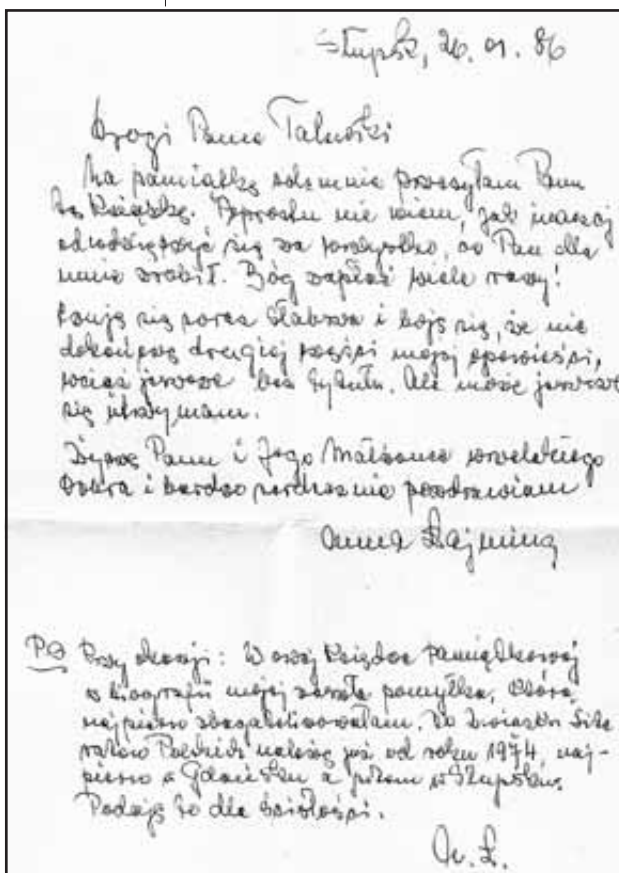 Słupsk, 26.01.86
Drogi Panie Talewski
Na pamiątkę ode mnie przesyłam Panu
tę książkę. Poprostu nie wiem, jak inaczej
odwdzięczyć się za wszystko, co Pan dla
mnie zrobił. Bóg zapłać wiele razy!
Czuję się coraz słabsza i boję się, że nie
dokończę drugiej części mojej opowieści,
wciąż jeszcze bez tytułu. Ale może jeszcze
się utrzymam.
Życzę Panu i Jego Małżonce wszelkiego
dobra i bardzo serdecznie pozdrawiam
Anna Łajming
PS Przy okazji: W owej Księdze Pamiątkowej
w biografii mojej zaszła pomyłka, którą
najpierw zbagatelizowałam. Do Związku Lite
ratów Polskich należę już od roku 1974, naj-
pierw w Gdańsku a potem w Słupsku.
Podaję to dla ścisłości.
A. Ł.